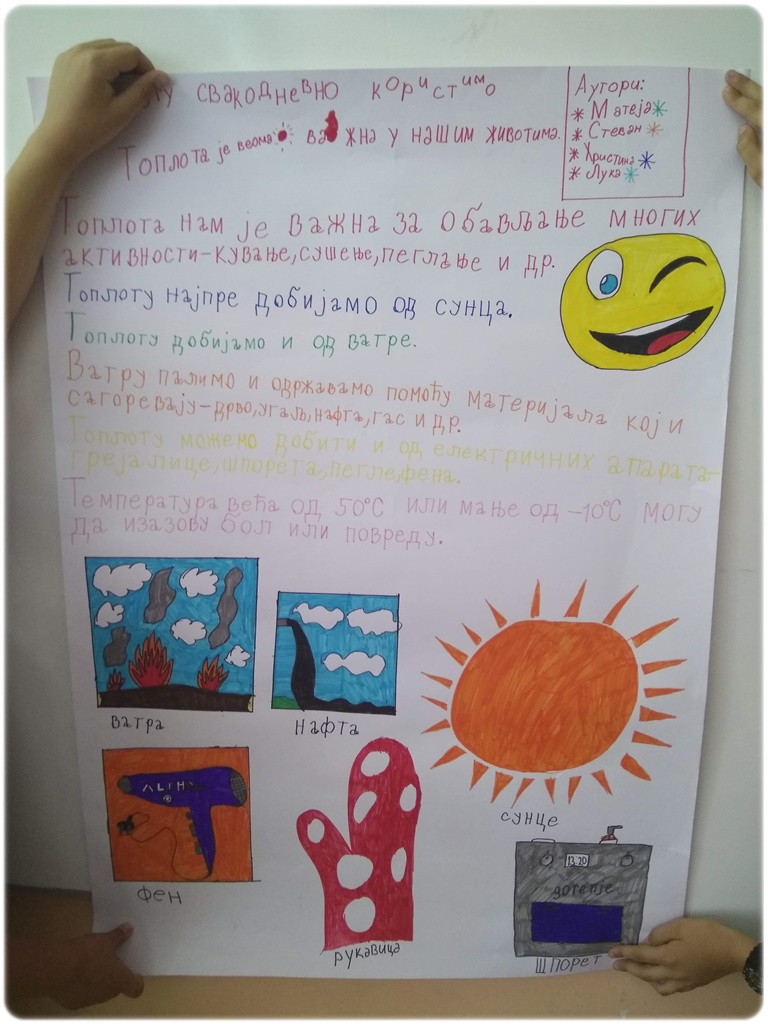 свакодневно користимо
Топлота је веома важна у нашим животима.
Аутори:
* Матеја *
* Стеван *
* Христина *
* Лука *
Топлота нам је важна за обављање многих
активности-кување,сушење,пеглање и др.
Топлоту најпре добијамо од сунца.
Топлоту добијамо и од ватре.
Ватру палимо и одржавамо помоћу материјала који
сагоревају-дрво,угаљ,нафта,гас и др.
Топлоту можемо добити и од електричних апарата-
грејалице,шпорета,пегле,фена.
Температура већа од 50°C или мање од -10°C могу
да изазову бол или повреду.
ватра
нафта
сунце
фен
рукавица
13.20
gorenje
шпорет